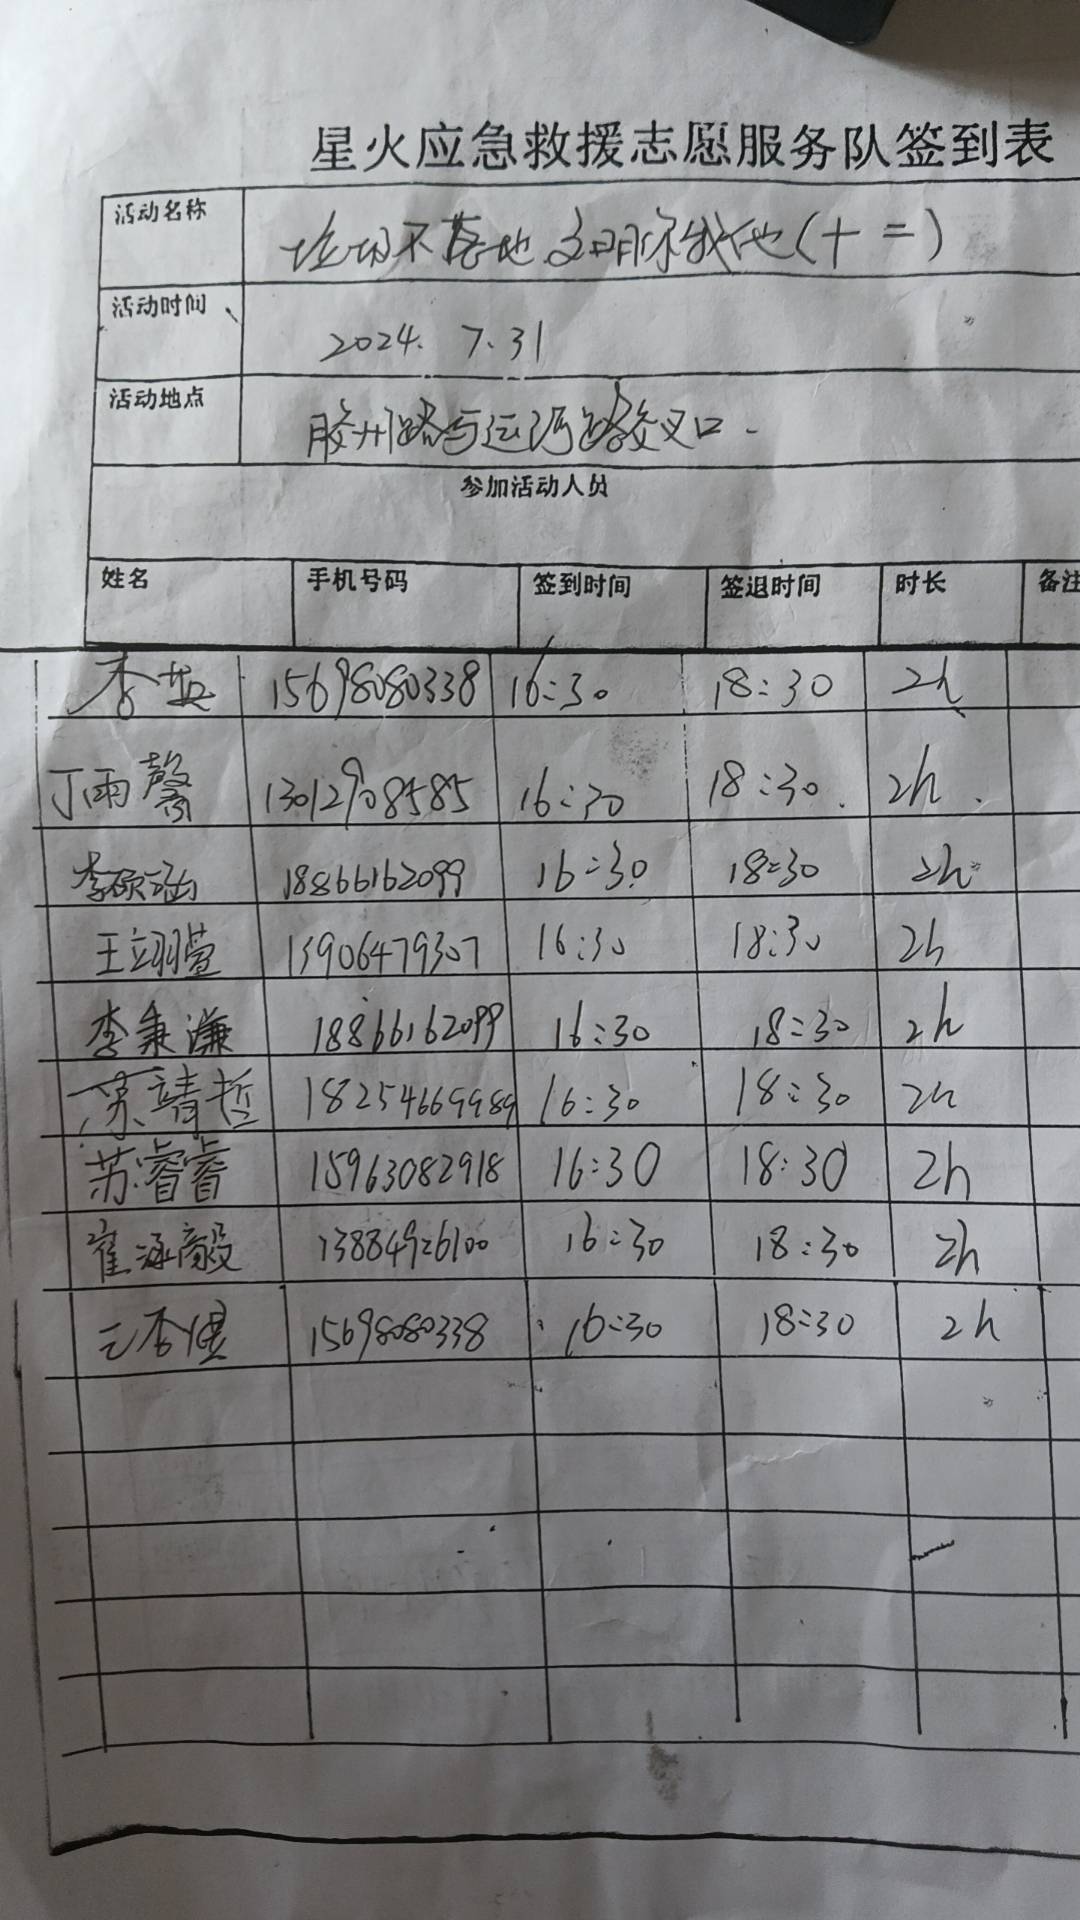 星火应急救援志愿服务队签到表
活动名称 垃圾不落地 文明你我他(十二)
活动时间 2024. 7.31
活动地点 胶州路与运河路交叉口.
参加活动人员
姓名 手机号码 签到时间 签退时间 时长 备注
李英 15698080338 16:30 18:30 2h
丁雨馨 13012908585 16:30 18:30. 2h.
李硕涵 18866162099 16:30 18:30 2h
王翊萱 13906479307 16:30 18:30 2h
李秉谦 18866162099 16:30 18:30 2h
苏靖哲 18254669989 16:30 18:30 2h
苏睿睿 15963082918 16:30 18:30 2h
崔涵毅 13884926100 16:30 18:30 2h
15698080338 16:30 18:30 2h